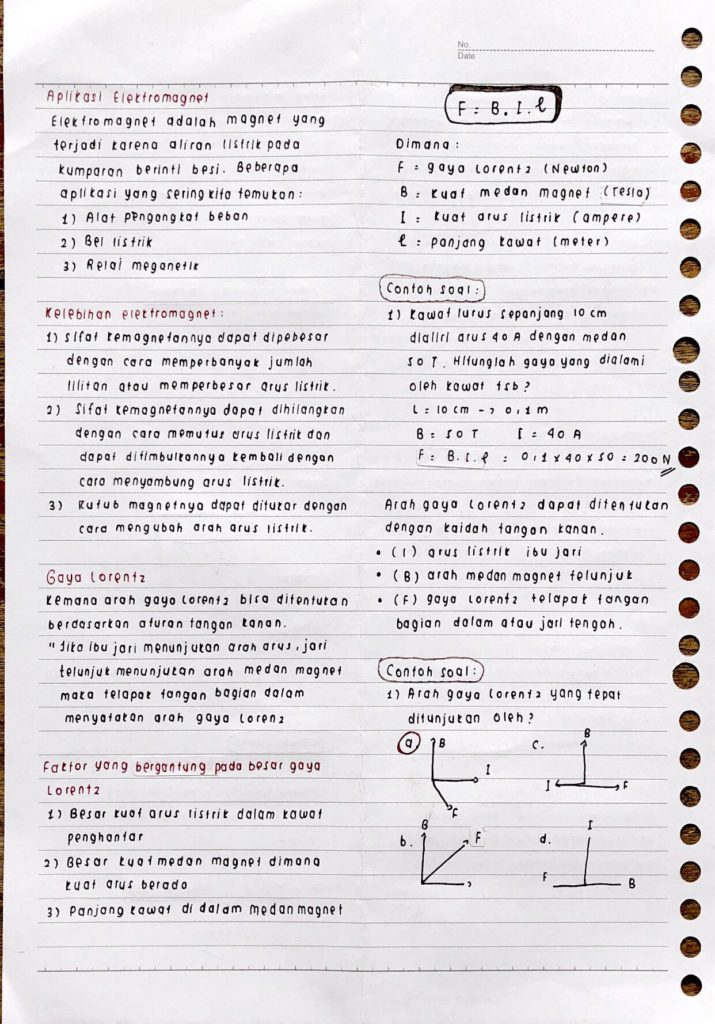 No.
Date
Aplikasi Elektromagnet
Elektromagnet adalah magnet yang
terjadi karena aliran listrik pada
kumparan berinti besi. Beberapa
aplikasi yang sering kita temukan:
1) Alat pengangkat beban
2) Bel listrik
3) Relai meganetik
Kelebihan elektromagnet:
1) Sifat kemagnetannya dapat dipebesar
dengan cara memperbanyak jumlah
lilitan atau memperbesar arus listrik.
2) Sifat kemagnetannya dapat dihilangkan
dengan cara memutus arus listrik dan
dapat ditimbulkannya kembali dengan
cara menyambung arus listrik.
3) Kutub magnetnya dapat ditukar dengan
cara mengubah arah arus listrik.
Gaya Lorentz
Kemana arah gaya lorentz bisa ditentukan
berdasarkan aturan tangan kanan.
"Jika ibu jari menunjukan arah arus, jari
telunjuk menunjukan arah medan magnet
maka telapak tangan bagian dalam
menyatakan arah gaya Lorenz
Faktor yang bergantung pada besar gaya
Lorentz
1) Besar kuat arus listrik dalam kawat
penghantar
2) Besar kuat medan magnet dimana
kuat arus berada
3) Panjang kawat di dalam medan magnet
F = B. I. l
Dimana:
F = gaya lorentz (Newton)
B = kuat medan magnet (Tesla)
I = kuat arus listrik (ampere)
l = panjang kawat (meter)
Contoh soal:
1) Kawat lurus sepanjang 10 cm
dialiri arus 40 A dengan medan
50 T. Hitunglah gaya yang dialami
oleh kawat tsb?
L = 10 cm -> 0,1 m
B = 50 T I = 40 A
F = B. I. l = 0,1 x 40 x 50 = 200 N
Arah gaya Lorentz dapat ditentukan
dengan kaidah tangan kanan.
• (I) arus listrik ibu jari
• (B) arah medan magnet telunjuk
• (F) gaya lorentz telapak tangan
bagian dalam atau jari tengah.
Contoh soal:
1) Arah gaya lorentz yang tepat
ditunjukan oleh?
a B I F
c. B I F
b. B F
d. I F B